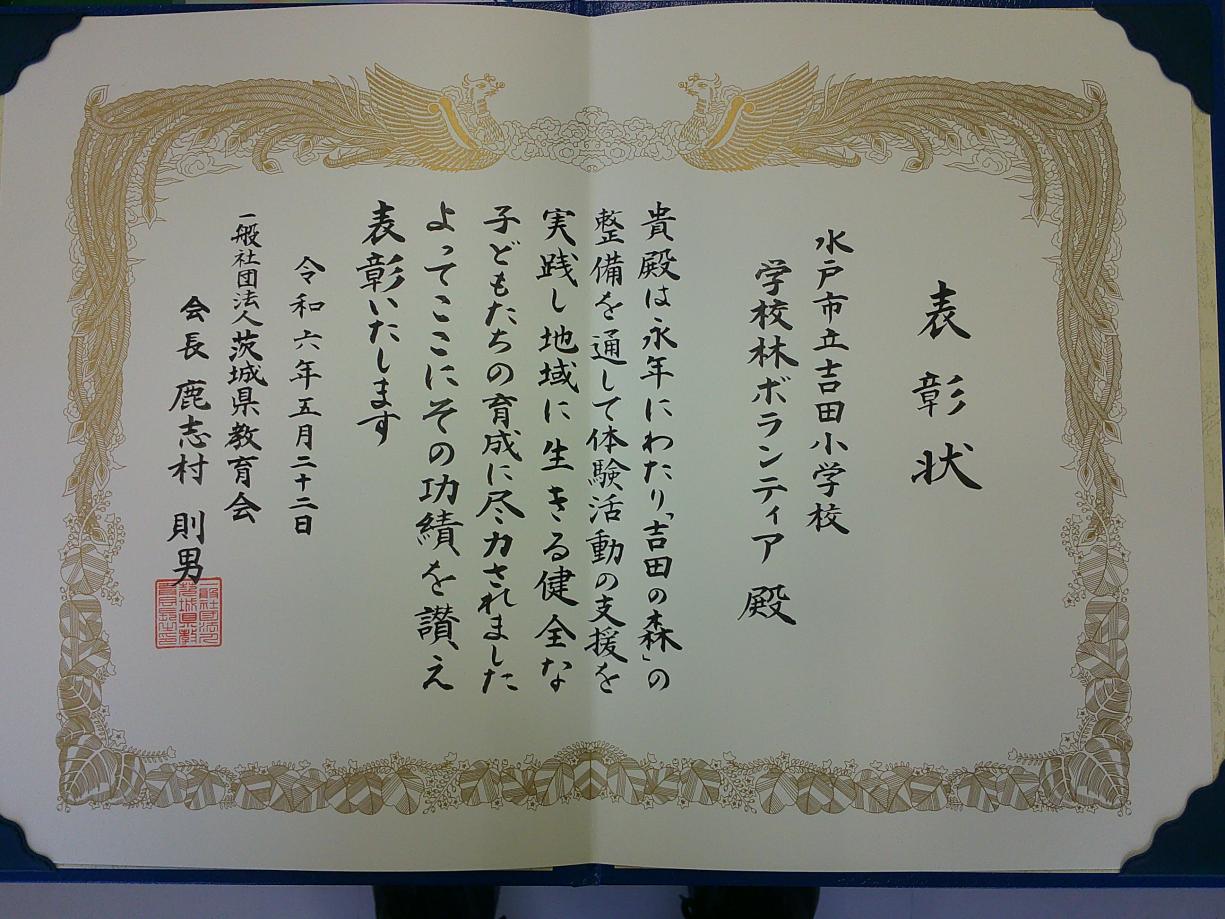 表彰状
水戸市立吉田小学校
学校林ボランティア 殿
貴殿は永年にわたり「吉田の森」の
整備を通して体験活動の支援を
実践し地域に生きる健全な
子どもたちの育成に尽力されました
よってここにその功績を讃え
表彰いたします
令和六年五月二十二日
一般社団法人茨城県教育会
会長 鹿志村 則男